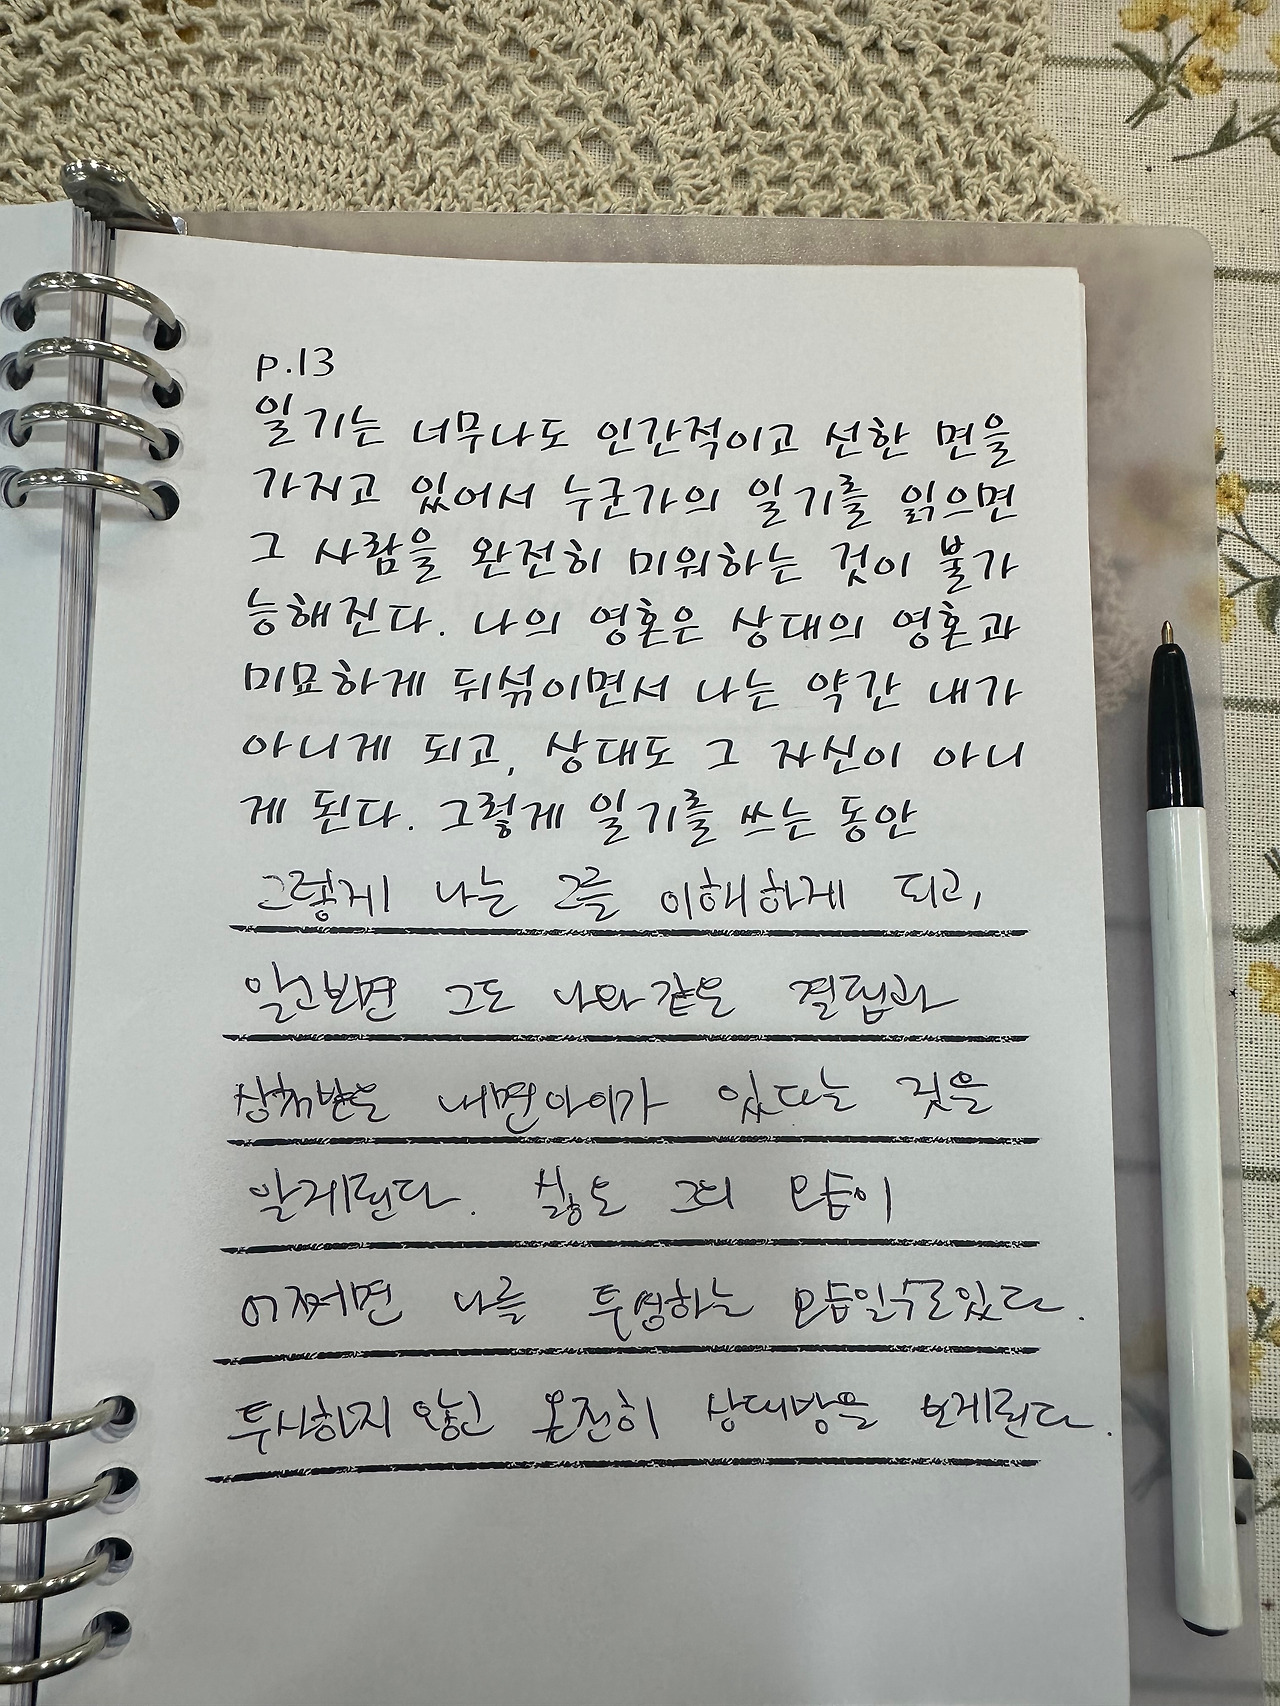 p.13
일기는 너무나도 인간적이고 선한 면을
가지고 있어서 누군가의 일기를 읽으면
그 사람을 완전히 미워하는 것이 불가
능해진다. 나의 영혼은 상대의 영혼과
미묘하게 뒤섞이면서 나는 약간 내가
아니게 되고, 상대도 그 자신이 아니
게 된다. 그렇게 일기를 쓰는 동안
그렇게 나는 그를 이해하게 되고,
알고보면 그도 나와 같은 결핍과
상처받은 내면아이가 있다는 것을
알게된다. 싫은 그의 모습이
어쩌면 나를 투영하는 모습일수도있다.
투사하지 않고 온전히 상대방을 보게된다.